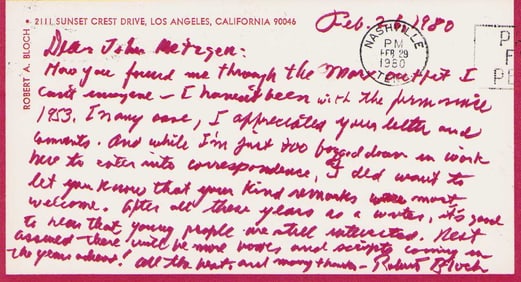 ROBERT A. BLOCH • 2111 SUNSET CREST DRIVE, LOS ANGELES, CALIFORNIA 90046
Feb. 2 1980
NASHVILLE
PM
FEB 29
1980
TENN
P
F
PE
Dear John
How you found me through the outfit I
can't imagine – I haven't been with the firm since
1953. In any case, I appreciated your letter and
comments. And while I'm just too bogged down in work
here to enter into correspondence, I did want to
let you know that your kind remarks were most
welcome. After all these years as a writer, it's good
to hear that young people are still interested. Rest
assured there will be more books and scripts coming in
the years ahead! All the best, and many thanks – Robert Bloch